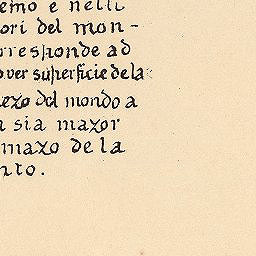 emo e nelli
ori del mon-
rresponde ad
over superficie de la
ezo del mondo a
sia mazor
mazo de la
nto.